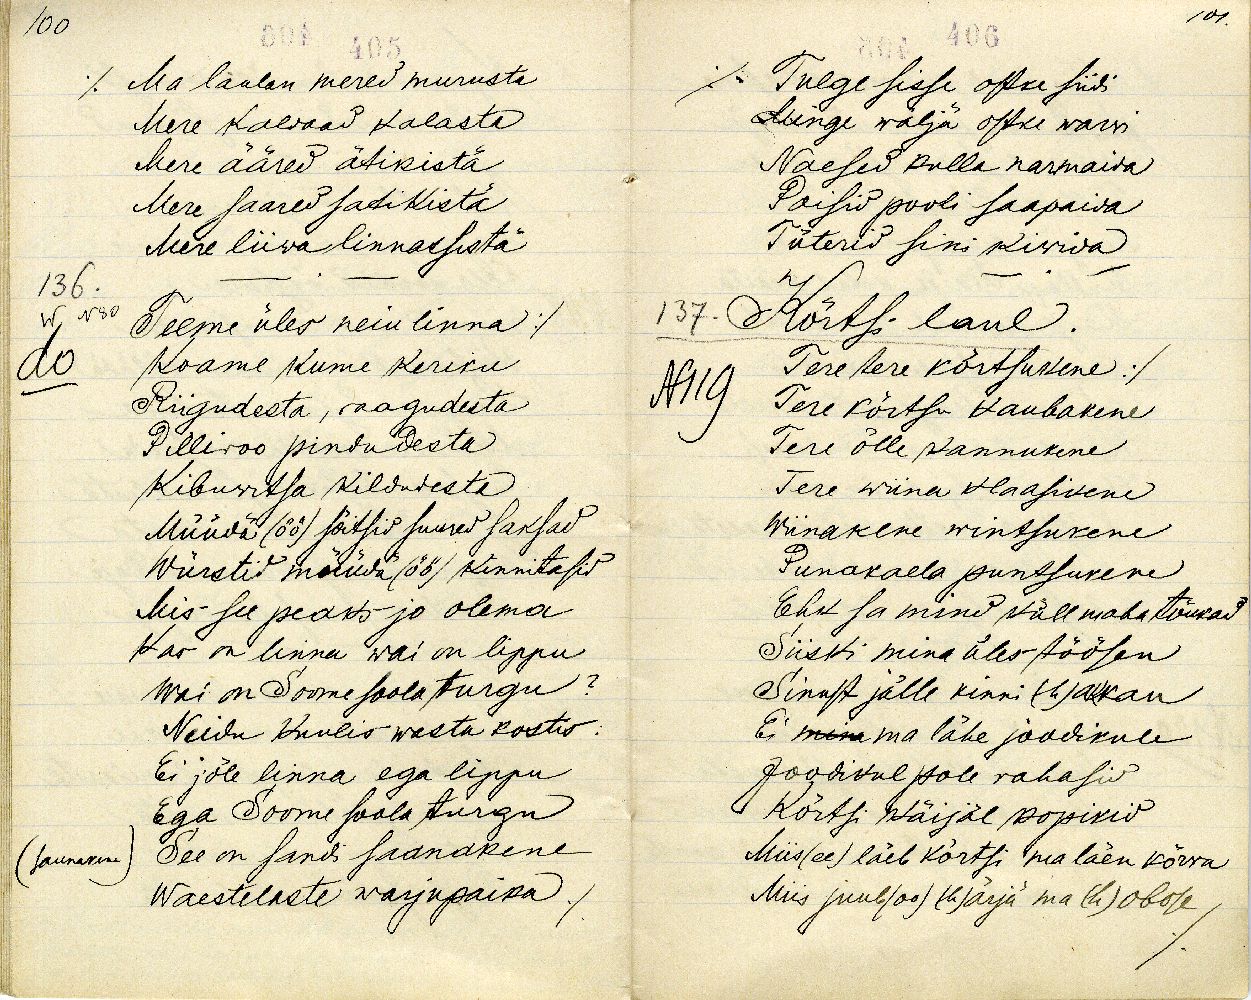 100
405
./. Ma laulan mered murusta
Mere kalwad kalasta
Mere ääred ätikistä
Mere saared satikista
Mere liiwa linnassista
136.
W N 80
do
Teeme üles neiu linna :/
Koame kume keriku
Riigudesta, raagudesta
Pilliroo pindudesta
Kibuwitsa kildudesta
Müüdä (öö) sõitsid suured saksad
Würstid müüdä (öö) kinnitasid
Mis see peaks jo olema
Kas on linna wai on lippu
Wai on Soome soola turgu ?
Neidu kuulis wasta kostis :
Ei jõle linna ega lippu
Ega Soome soola turgu
(saunakene) See on sandi saanakene
Waestelaste warjupaika ./.
101.
406
./. Tulge sisse ostke siidi
Minge wäljä ostke warwi
Naesed kulla narmaida
Poisid pooli saapaida
Tüterid sini kiwida
137. Kõrtsi laul.
N 119
Tere tere kõrtsukene :/
Tere kõrtsu kaubakene
Tere õlle kannukene
Tere wiina klaasikene
Wiinakene wintsukene
Punakaela puntsukene
Ehk sa mind küll maha tõukad
Siiski mina üles töösen
Sinust jälle kinni (h)akkan
Ei mina ma lähe joodikule
Joodikul pole rahasid
Kõrtsi käijäl kopikid
Miis (ee) läeb kõrtsi ma läen kõrwa
Miis juub (oo) (h)ärjä ma (h)obose
./.